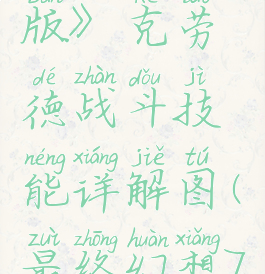 版》 克 劳
dé zhàn dǒu jì
德 战 斗 技
néng xiáng jiě tú
能 详 解 图 (
zuì zhōng huàn xiǎng
最 终 幻 想 7